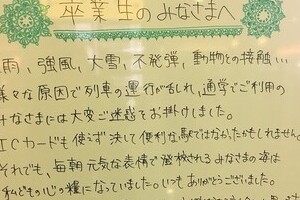 卒業生のみなさまへ
雨、強風、大雪、不発弾、動物との接触…
様々な原因で列車の運行が乱れ、通学でご利用の
みなさまには大変ご迷惑をお掛けしました。
ICカードも使えず決して便利な駅ではなかったかもしれません。
それでも、毎朝元気な表情で登校されるみなさまの姿は
私どもの心の糧になっていました。いつもありがとうございました。